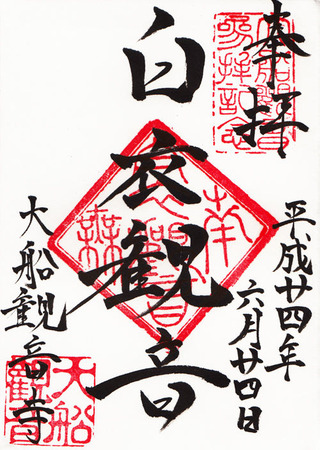 奉拝
平成廿四年
六月廿四日
白衣観音
大船観音寺
大船
観音